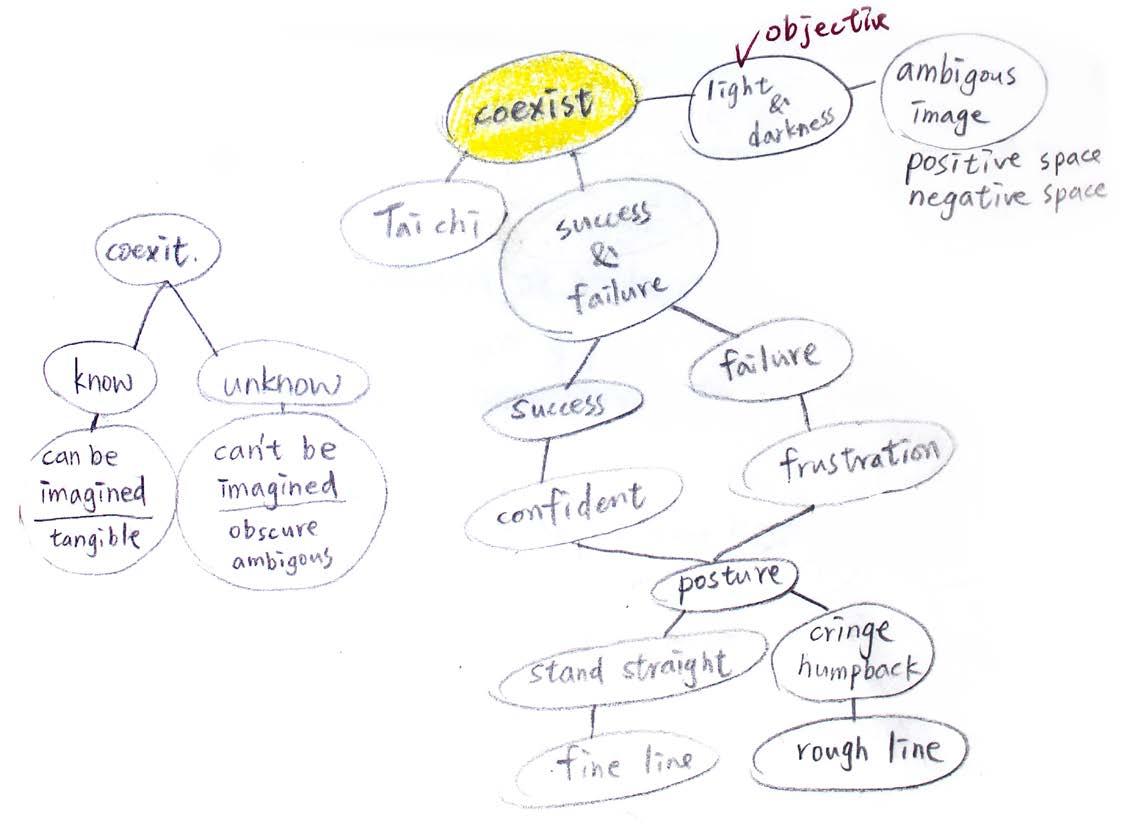 objective
coexist
light
&
darkness
ambigous
image
positive space
negative space
Tai chi
success
&
failure
coexit.
know
unknow
can be
imagined
tangible
can't be
imagined
obscure
ambigous
success
failure
confident
frustration
posture
stand straight
cringe
humpback
fine line
rough line